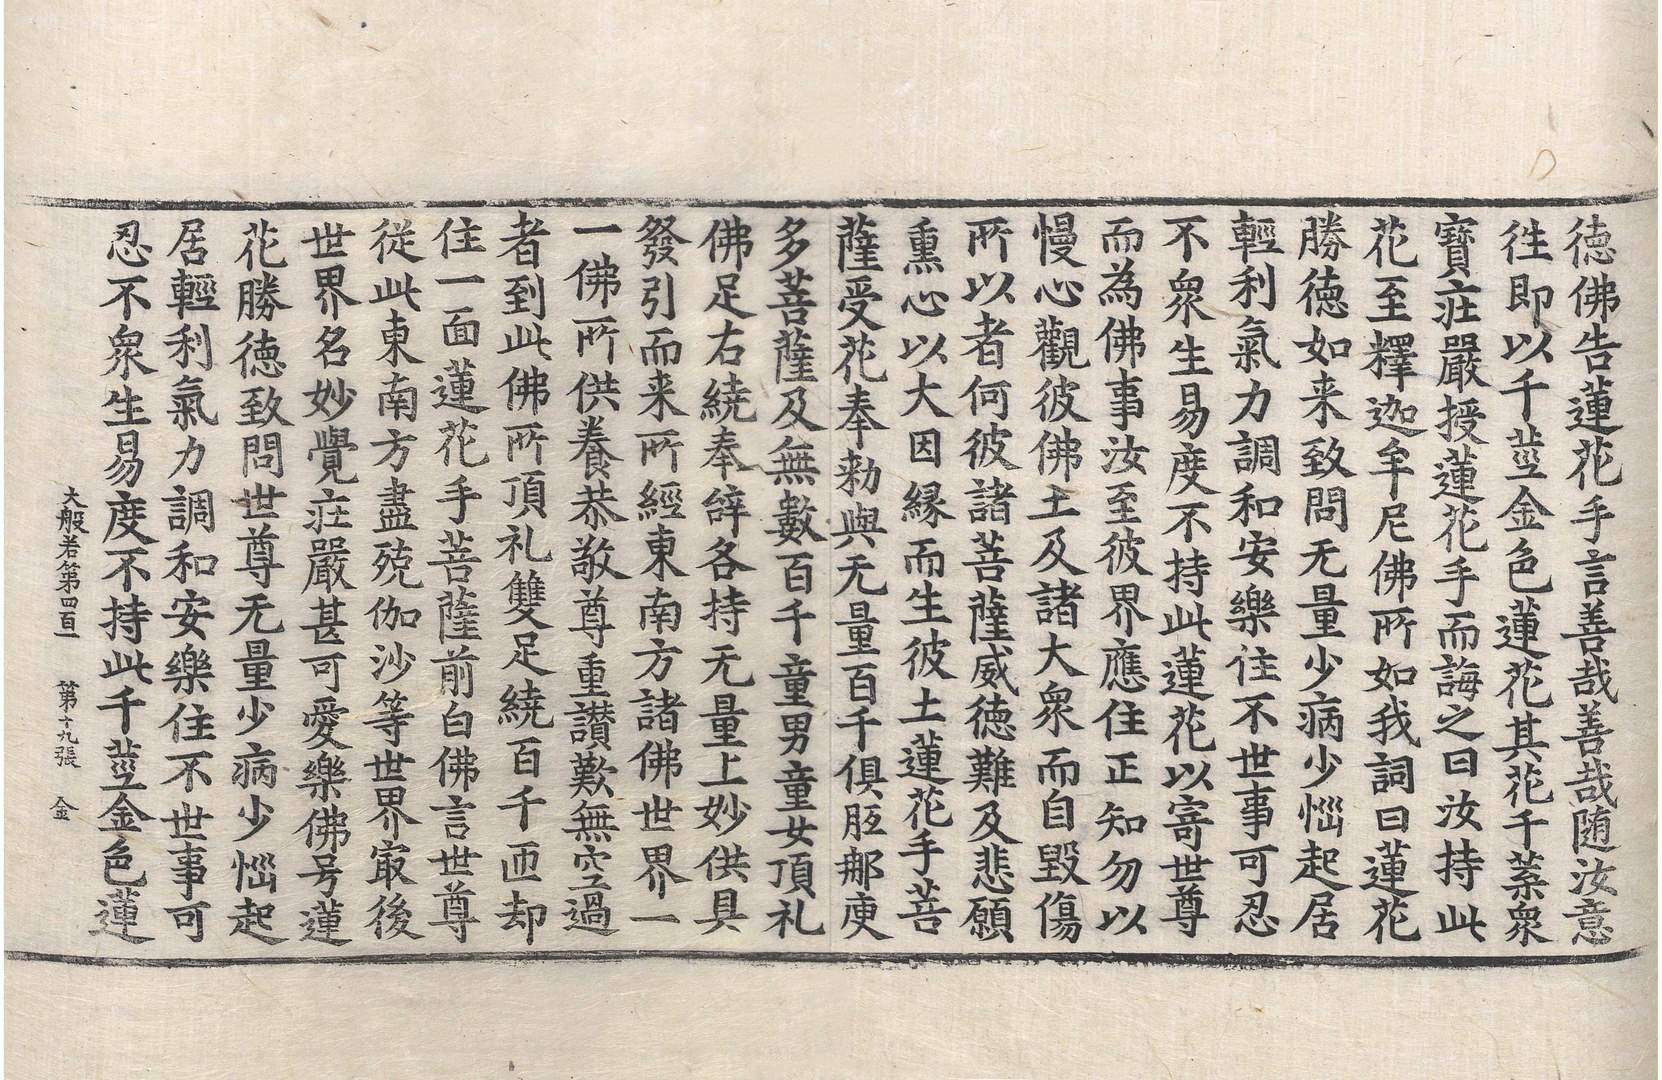 德佛告蓮花手言善哉善哉随汝意
徃即以千莖金色蓮花其花千葉衆
寶莊嚴授蓮花手而誨之曰汝持此
花至釋迦牟尼佛所如我詞曰蓮花
勝德如来致問无量少病少惱起居
輕利氣力調和安樂住不世事可忍
不衆生易度不持此蓮花以寄世尊
而為佛事汝至彼界應住正知勿以
慢心觀彼佛土及諸大衆而自毀傷
所以者何彼諸菩薩威德難及悲願
熏心以大因緣而生彼土蓮花手菩
薩受花奉勑與无量百千俱胝那庾
多菩薩及無數百千童男童女頂礼
佛足右繞奉辝各持无量上妙供具
發引而来所經東南方諸佛世界一
一佛所供養恭敬尊重讃歎無空過
者到此佛所頂礼雙足繞百千匝却
住一面蓮花手菩薩前白佛言世尊
從此東南方盡殑伽沙等世界㝡後
世界名妙覺莊嚴甚可愛樂佛号蓮
花勝德致問世尊无量少病少惱起
居輕利氣力調和安樂住不世事可
忍不衆生易度不持此千莖金色蓮
大般若第四百一 第十九張 金